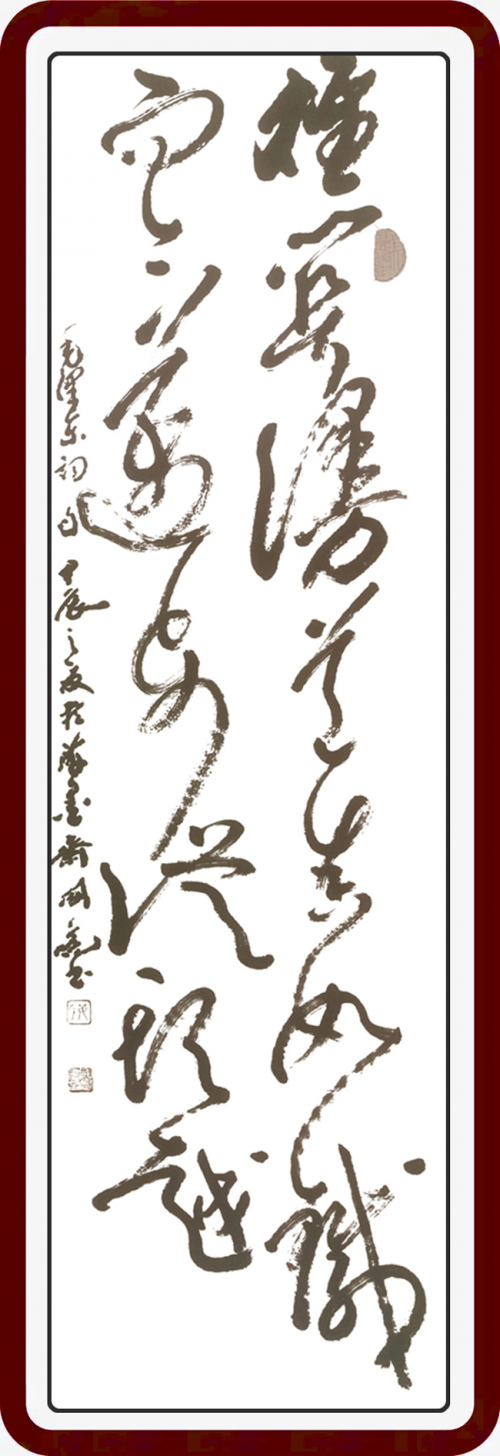 雄關漫道真如鐵
而今邁步從頭越
毛澤东詞句 甲辰之夏於墨齋 书